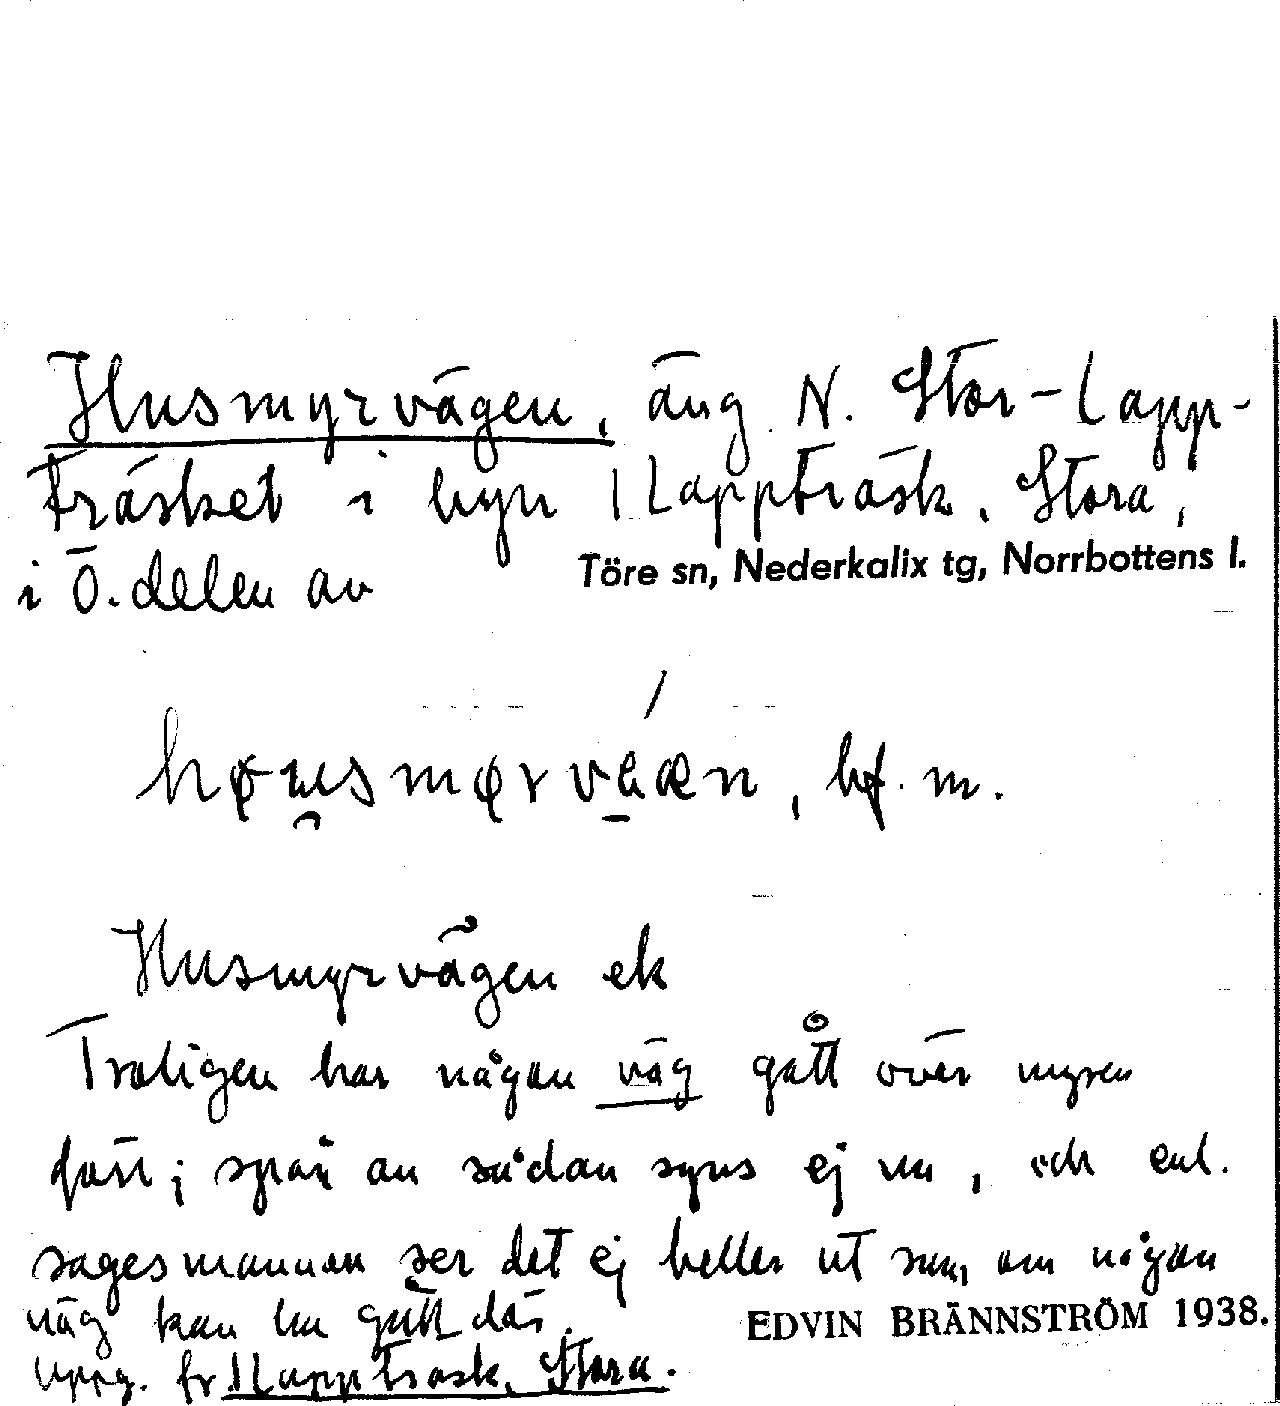 Husmyrvägen, äng N. Stor-Lapp-
träsket i byn 1 Lappträsk, Stora,
i Ö. delen av Töre sn, Nederkalix tg, Norrbottens l.
bf. m.
Husmyrvägen ek
Troligen har någon väg gått över myren
förr; spår av sådan syns ej nu, och enl.
sagesmannen ser det ej heller ut som om någon
väg kan ha gått där. EDVIN BRÄNNSTRÖM 1938.
Uppg. fr 1 Lappträsk, Stora.